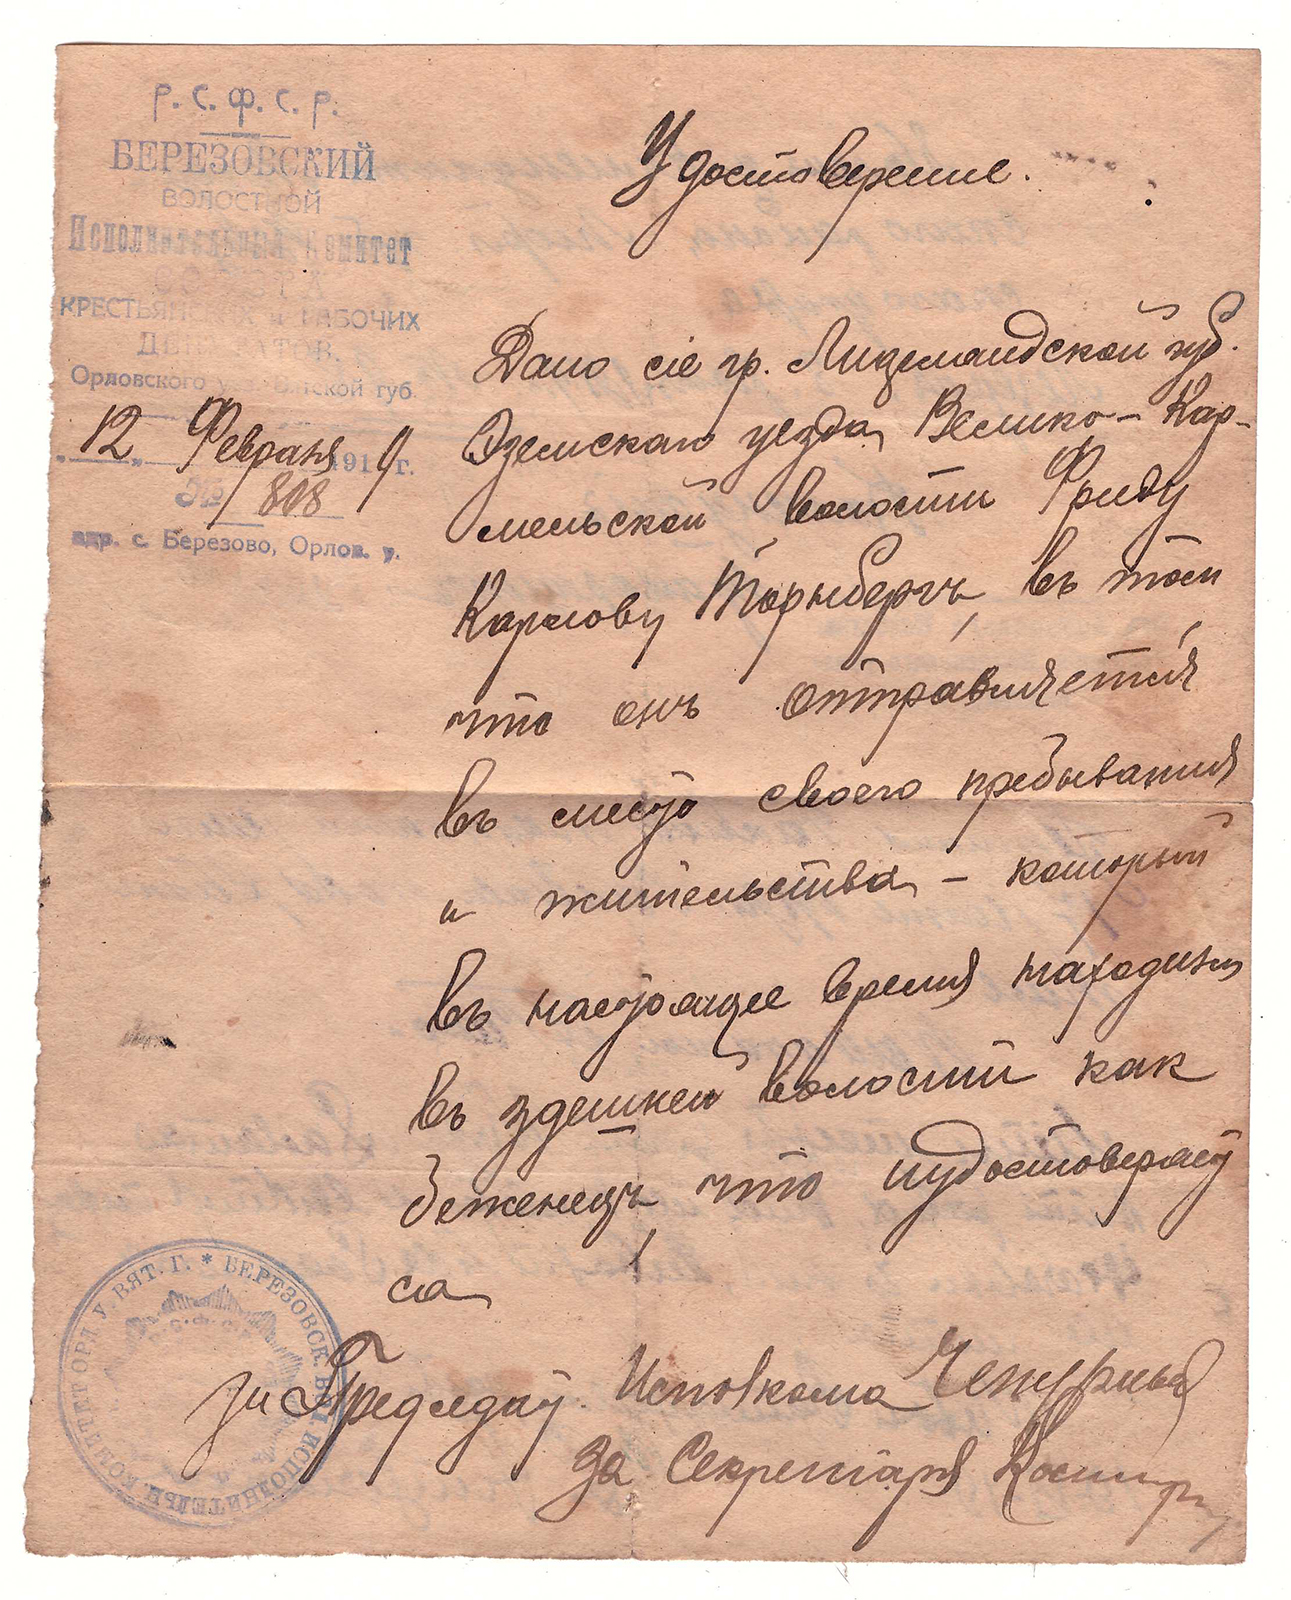 Р. С. Ф. С. Р.
БЕРЕЗОВСКИЙ
ВОЛОСТНОЙ
Исполнительный Комитет
СОВЕТА
КРЕСТЬЯНСКИХ и РАБОЧИХ
ДЕПУТАТОВ.
Орловского у., Вятской губ.
„12„ Февраля 1919 г.
№ 808
адр. с. Березово, Орлов. у.
Удостоверение.
Дано сіе гр. Лифляндской губ.
Эзельскаго уезда, Велико-Кар-
мельской волости Фриду
Карлову Торнбергъ, въ том
что онъ отправляется
въ место своего пребывания
и жительства – который
въ настоящее время находился
въ здешней волости как
беженецъ, что и удостоверяет
ся
за Председат. Исполкома
За Секретаря
БЕРЕЗОВСК. ВОЛ. ИСПОЛНИТЕЛЬН. КОМИТЕТ ОРЛ. У. ВЯТ. Г. *
Р.С.Ф.С.Р.